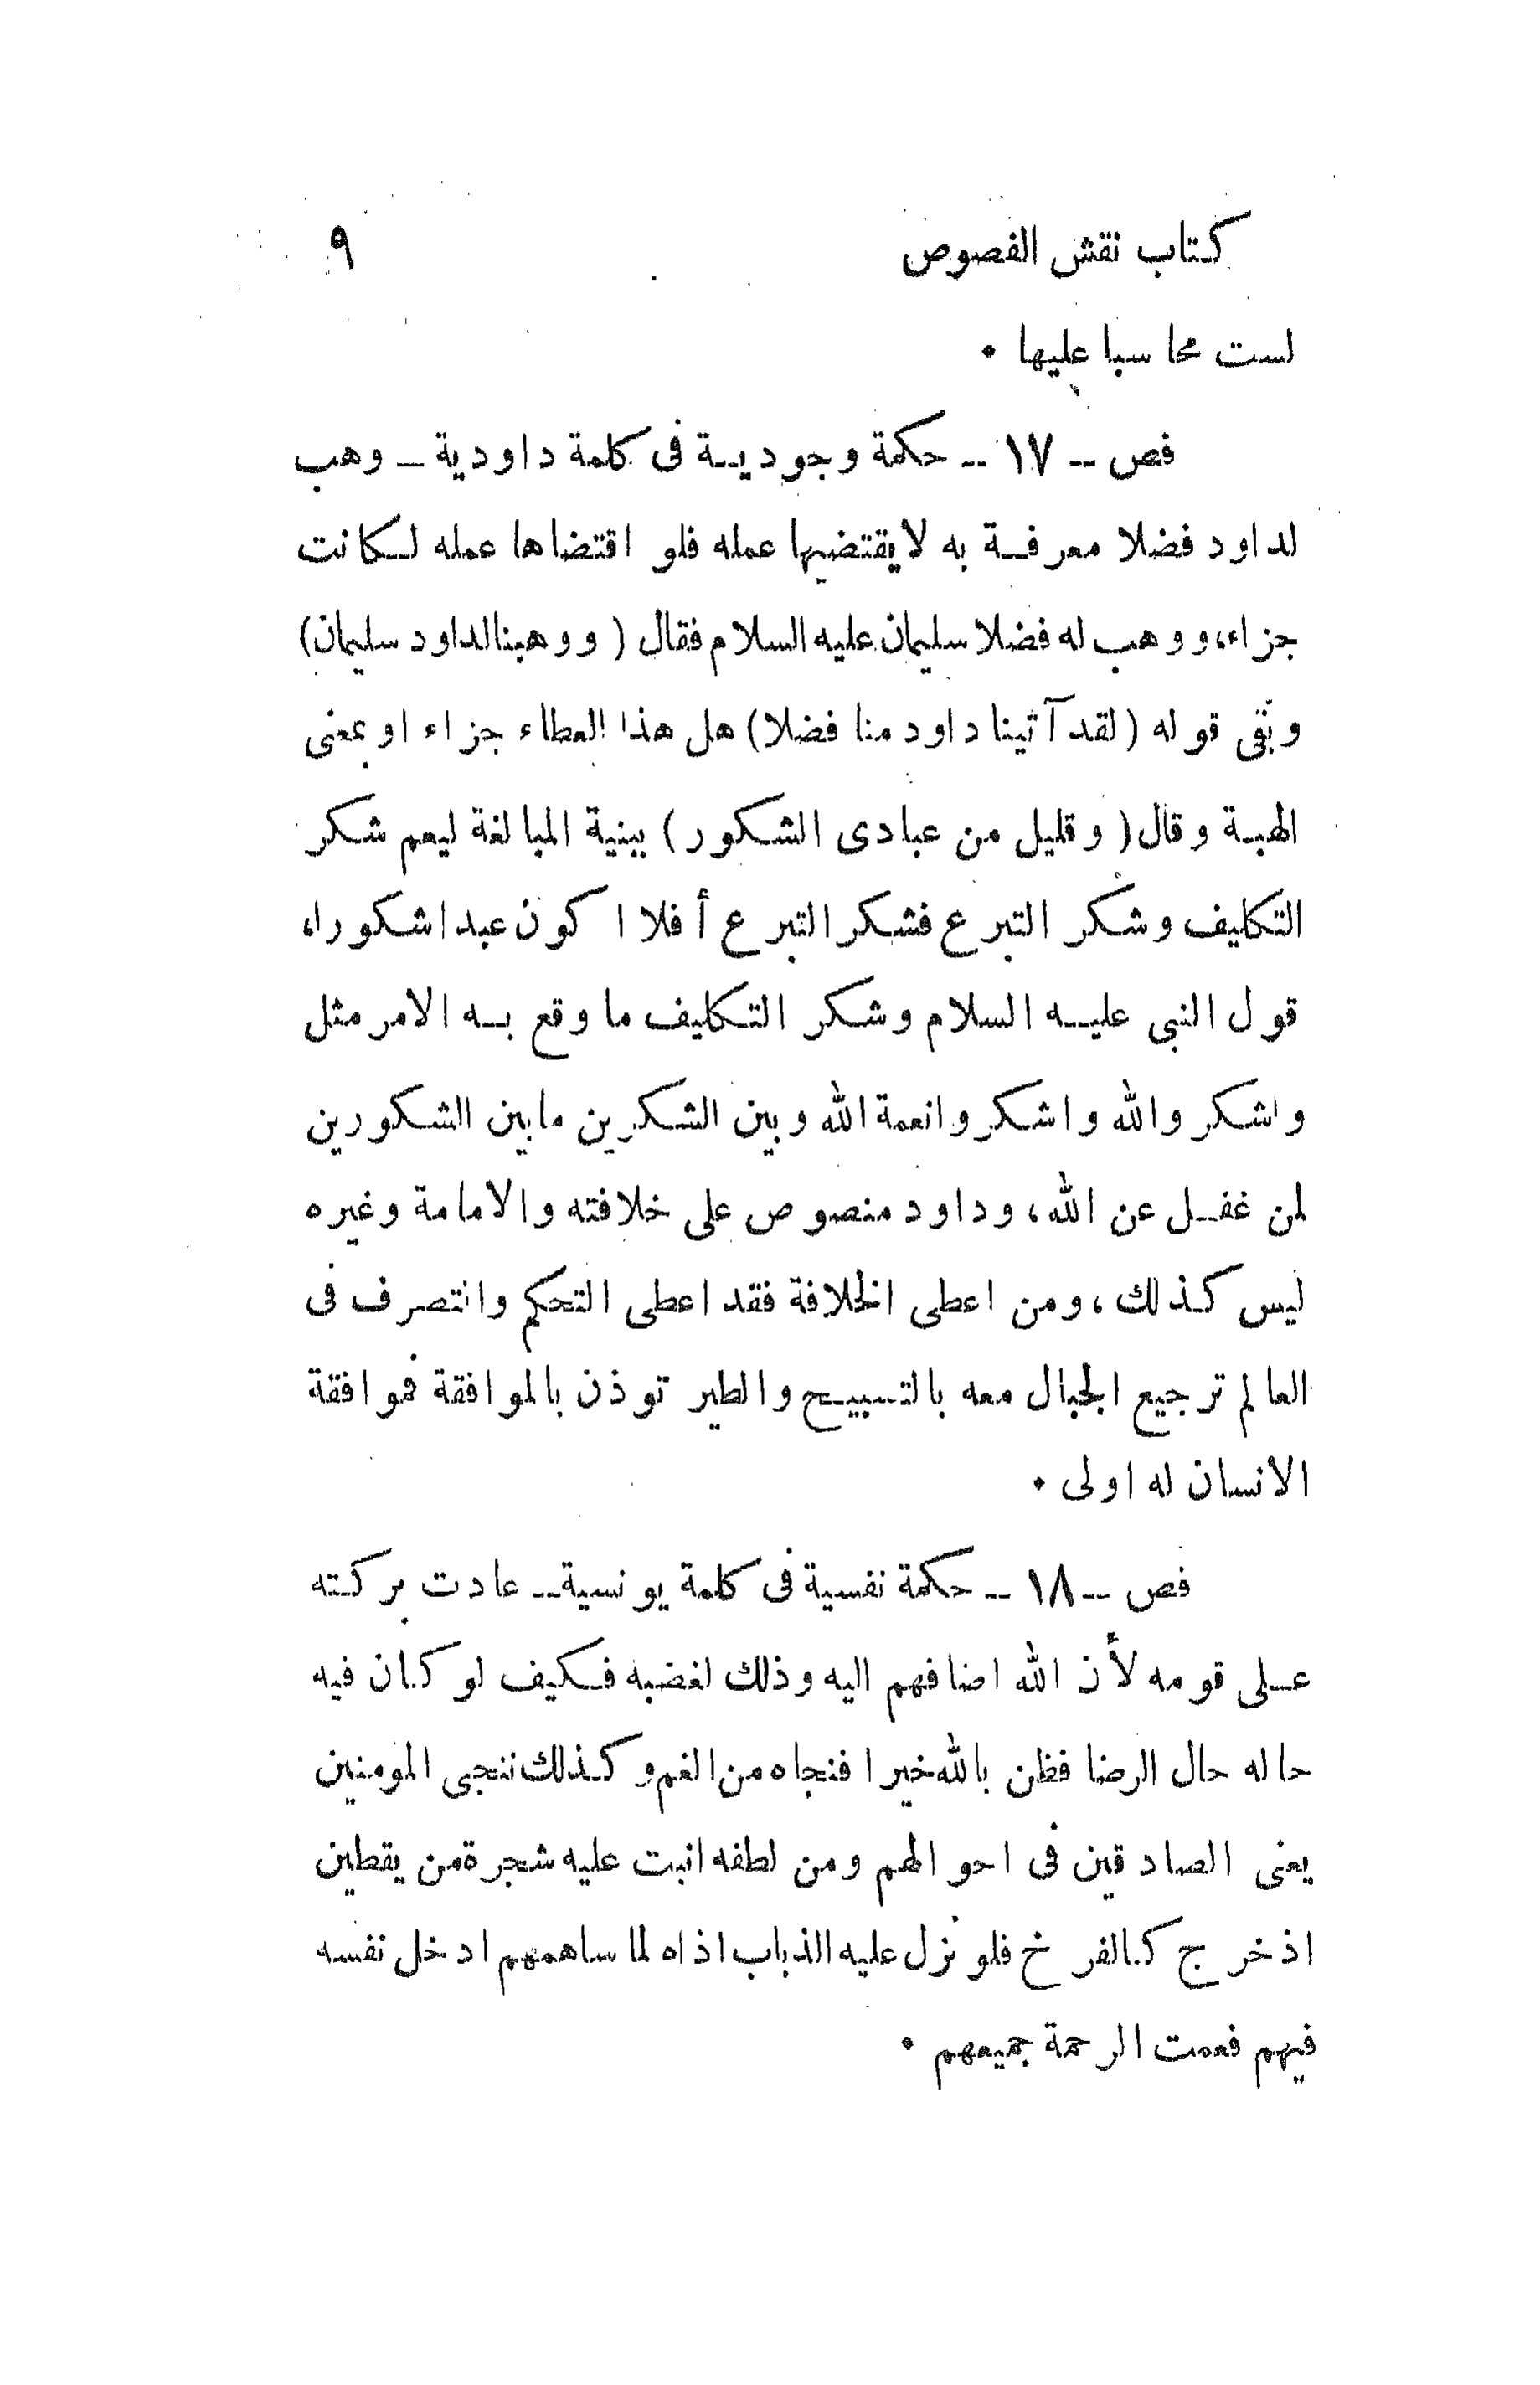 كتاب نقش الفصوص ٩
لست محاسبا عليها .
فص -- ١٧ -- حكمة وجودية فى كلمة داودية - وهب
لداود فضلا معرفة به لا يقتضيها عمله فلو اقتضاها عمله لكانت
جزاء، ووهب له فضلا سليمان عليه السلام فقال ( ووهبنا لداود سليمان )
وبقى قوله ( لقد آتينا داود منا فضلا ) هل هذا العطاء جزاء او بمعنى
الهبة وقال ( وقليل من عبادى الشكور ) ببنية المبالغة ليعم شكر
التكليف وشكر التبرع فشكر التبرع أفلا اكون عبدا شكورا،
قول النبى عليه السلام وشكر التكليف ما وقع به الامر مثل
واشكروا لله واشكروا نعمة الله وبين الشكرين ما بين الشكورين
لمن غفل عن الله، وداود منصوص على خلافته والامامة وغيره
ليس كذلك، ومن اعطى الخلافة فقد اعطى التحكم وانتصرف فى
العالم ترجيع الجبال معه بالتسبيح والطير توذن بالموافقة فموافقة
الانسان له اولى .
فص -- ١٨ -- حكمة نفسية فى كلمة يونسية -- عادت بركته
على قومه لأن الله اضافهم اليه وذلك لغضبه فكيف لو كان فيه
حاله حال الرضا فظن بالله خيرا فنجاه من الغم وكذلك ننجى المومنين
يعنى الصادقين فى احوالهم ومن لطفه انبت عليه شجرة من يقطين
اذ خرج كالفرخ فلو نزل عليه الذباب اذاه لما ساهمهم ادخل نفسه
فيهم فعمت الرحمة جميعهم .